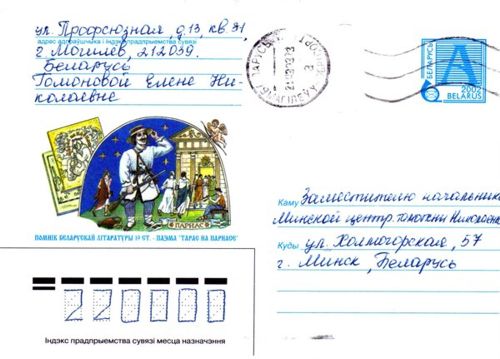 ул. Профсоюзная, д. 13, кв. 31,
адрас адпраўшчыка і індэкс прадпрыемства сувязі
г Могилев, 212039.
Беларусь
Гомоновой Елене Ни-
колаевне
БЕЛАРУСЬ
A
2002
BELARUS
ПАРНАС
ПОМНІК БЕЛАРУСКАЙ ЛІТАРАТУРЫ 19 СТ. - ПАЭМА "ТАРАС НА ПАРНАСЕ"
Каму Заместителю начальника
Минской центр. таможни
Куды ул. Холмогорская, 57
г. Минск, Беларусь
220000
Індэкс прадпрыемства сувязі месца назначэння